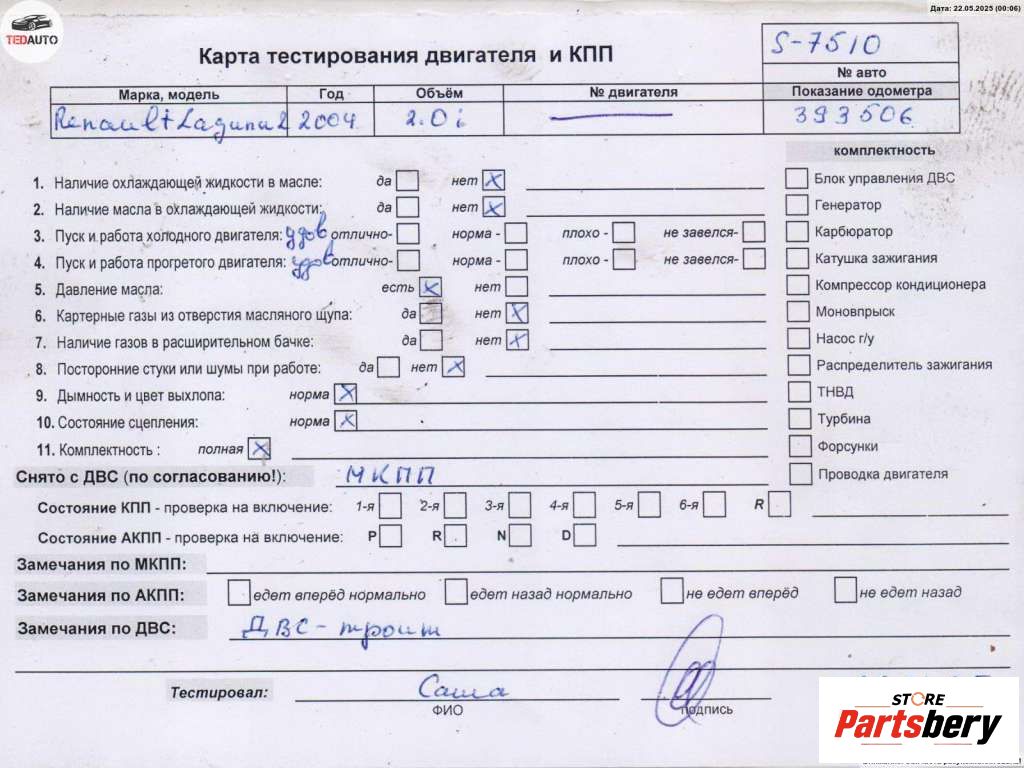 Дата: 22.05.2025 (00:06)
TEDAUTO
Карта тестирования двигателя и КПП
S-7510
№ авто
Марка, модель Год Объём № двигателя Показание одометра
Renault Laguna 2 2004 2.0i 393506
комплектность
1. Наличие охлаждающей жидкости в масле: да нет
Блок управления ДВС
2. Наличие масла в охлаждающей жидкости: да нет
Генератор
3. Пуск и работа холодного двигателя: удов отлично- норма - плохо - не завелся-
Карбюратор
4. Пуск и работа прогретого двигателя: удов отлично- норма - плохо - не завелся-
Катушка зажигания
5. Давление масла: есть нет
Компрессор кондиционера
6. Картерные газы из отверстия масляного щупа: да нет
Моновпрыск
7. Наличие газов в расширительном бачке: да нет
Насос г/у
8. Посторонние стуки или шумы при работе: да нет
Распределитель зажигания
9. Дымность и цвет выхлопа: норма
ТНВД
10. Состояние сцепления: норма
Турбина
11. Комплектность : полная
Форсунки
Снято с ДВС (по согласованию!): МКПП
Проводка двигателя
Состояние КПП - проверка на включение: 1-я 2-я 3-я 4-я 5-я 6-я R
Состояние АКПП - проверка на включение: P R N D
Замечания по МКПП:
Замечания по АКПП: едет вперёд нормально едет назад нормально не едет вперёд не едет назад
Замечания по ДВС: ДВС - троит
Тестировал: Саша
ФИО подпись
STORE
Partsbery